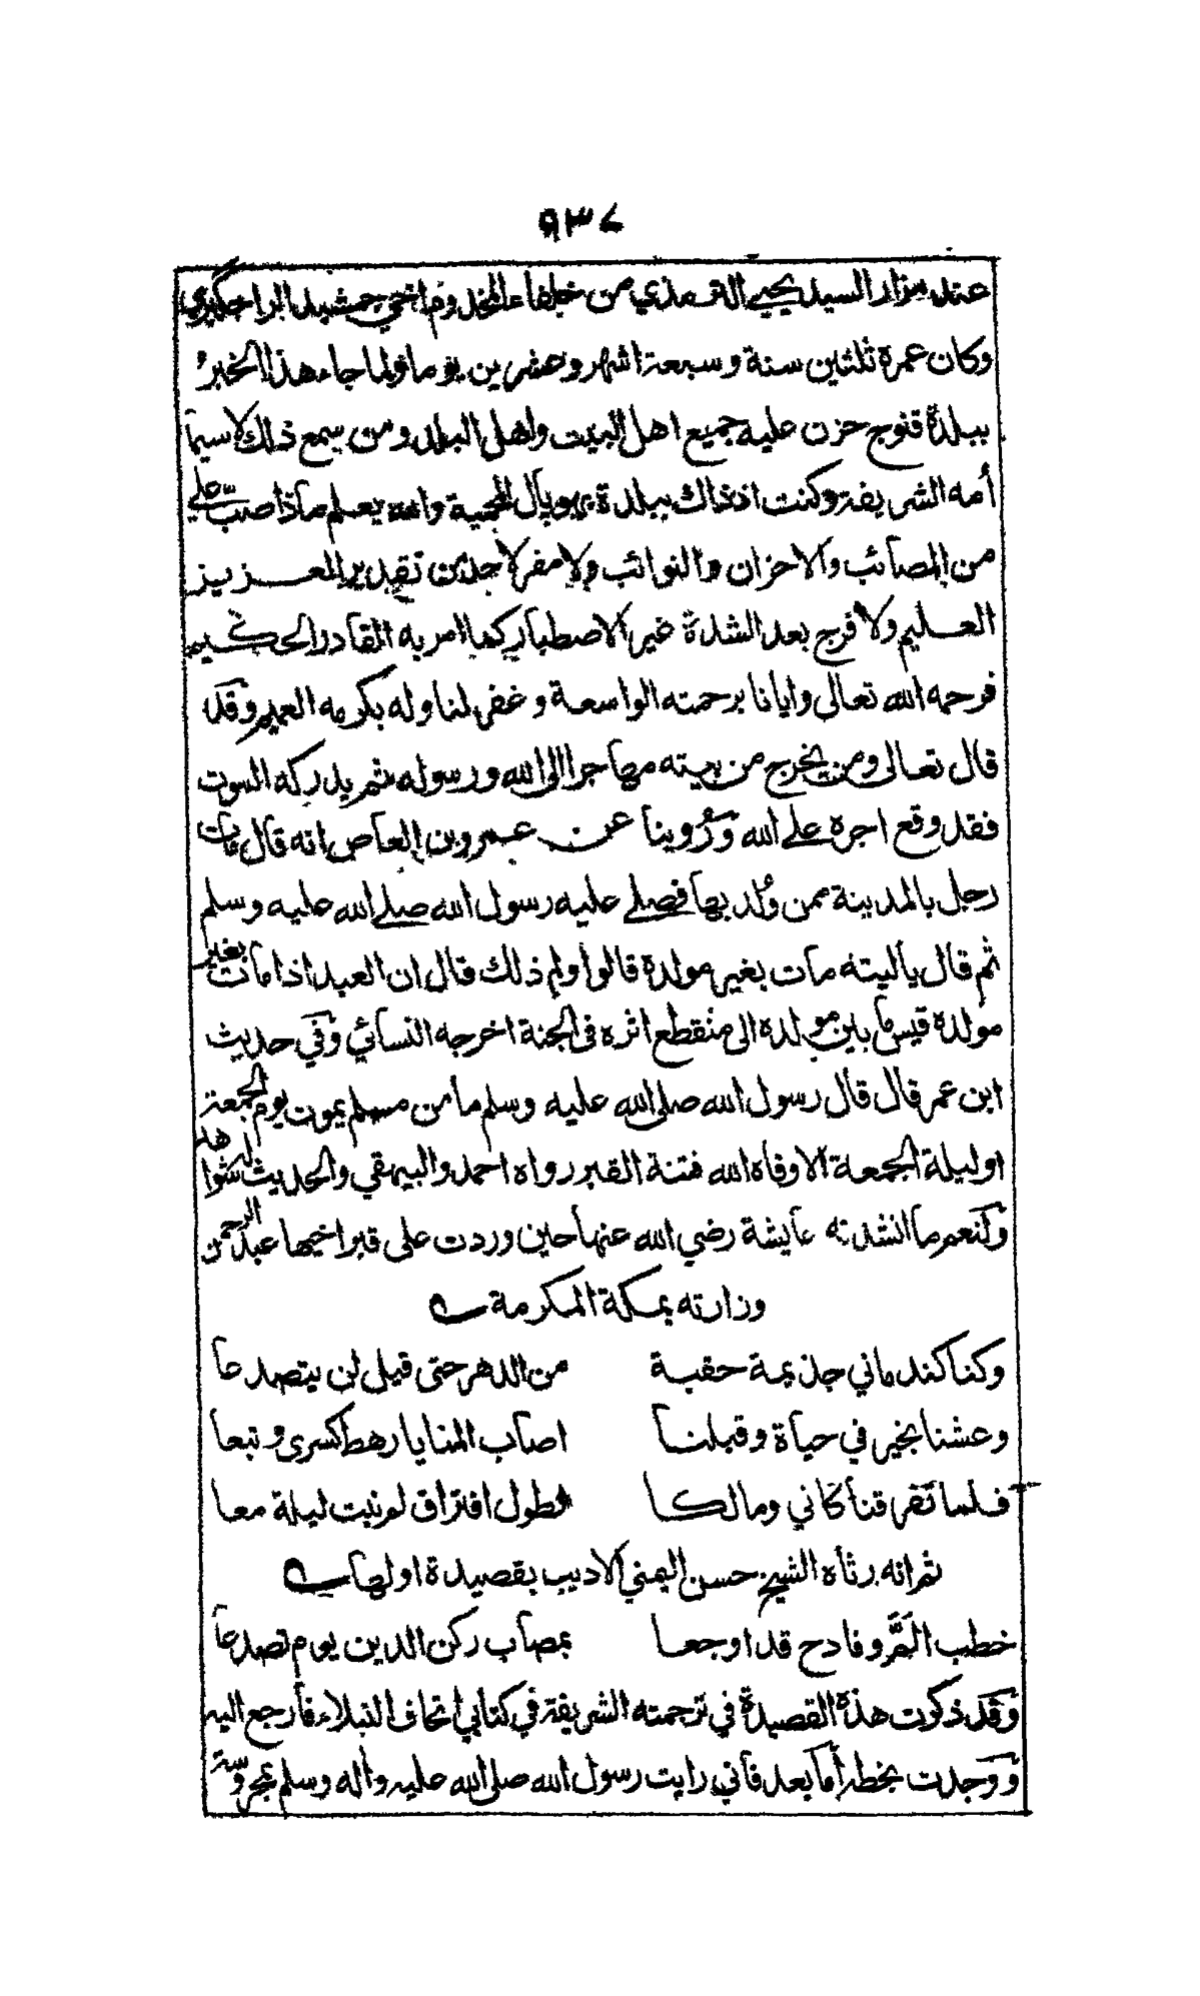 ٩٣٧
عند مزار السيد يحيى الترمذي من خلفاء المخدوم اخي جمشيد الراجگيري
وكان عمره ثلثين سنة وسبعة اشهر وعشرين يوما ولما جاء هذا الخبر
ببلدة قنوج حزن عليه جميع اهل البيت واهل البلد ومن سمع ذلك لا سيما
أمه الشريفة وكنت اذ ذاك ببلدة بهوپال المحمية والله يعلم ماذا صب علي
من المصائب والاحزان والنوائب ولا مفر لاحد من تقدير العزيز
العليم ولا فرج بعد الشدة غير الاصطبار كما امر به القادر الحكيم
فرحمه الله تعالى وايانا برحمته الواسعة وغفر لنا وله بكرمه العميم وقد
قال تعالى ومن يخرج من بيته مهاجرا الى الله ورسوله ثم يدركه الموت
فقد وقع اجره على الله ورُوينا عن عمرو بن العاص انه قال مات
رجل بالمدينة ممن وُلد بها فصلى عليه رسول الله صلى الله عليه وسلم
ثم قال يا ليته مات بغير مولده قالوا ولم ذلك قال ان العبد اذا مات بغير
مولده قيس ما بين مولده الى منقطع اثره في الجنة اخرجه النسائي وفي حديث
ابن عمر قال قال رسول الله صلى الله عليه وسلم ما من مسلم يموت يوم الجمعة
او ليلة الجمعة الا وقاه الله فتنة القبر رواه احمد والبيهقي والحديث له شواهد
ولنعم ما انشدته عايشة رضي الله عنها حين وردت على قبر اخيها عبد الرحمن
وزارته بمكة المكرمة
وكنا كندماني جذيمة حقبة من الدهر حتى قيل لن يتصدعا
وعشنا بخير في حياة وقبلنا اصاب المنايا رهط كسرى وتبعا
فلما تفرقنا كاني ومالكا لطول افتراق لم نبت ليلة معا
ثم انه رثاه الشيخ حسن اليمني الاديب بقصيدة اولها
خطب المَّ وفادح قد اوجعا بمصاب ركن الدين يوم تصدعا
وقد ذكرت هذه القصيدة في ترجمته الشريفة في كتابي اتحاف النبلاء فارجع اليه
ووجدت بخطه أما بعد فاني رايت رسول الله صلى الله عليه واله وسلم